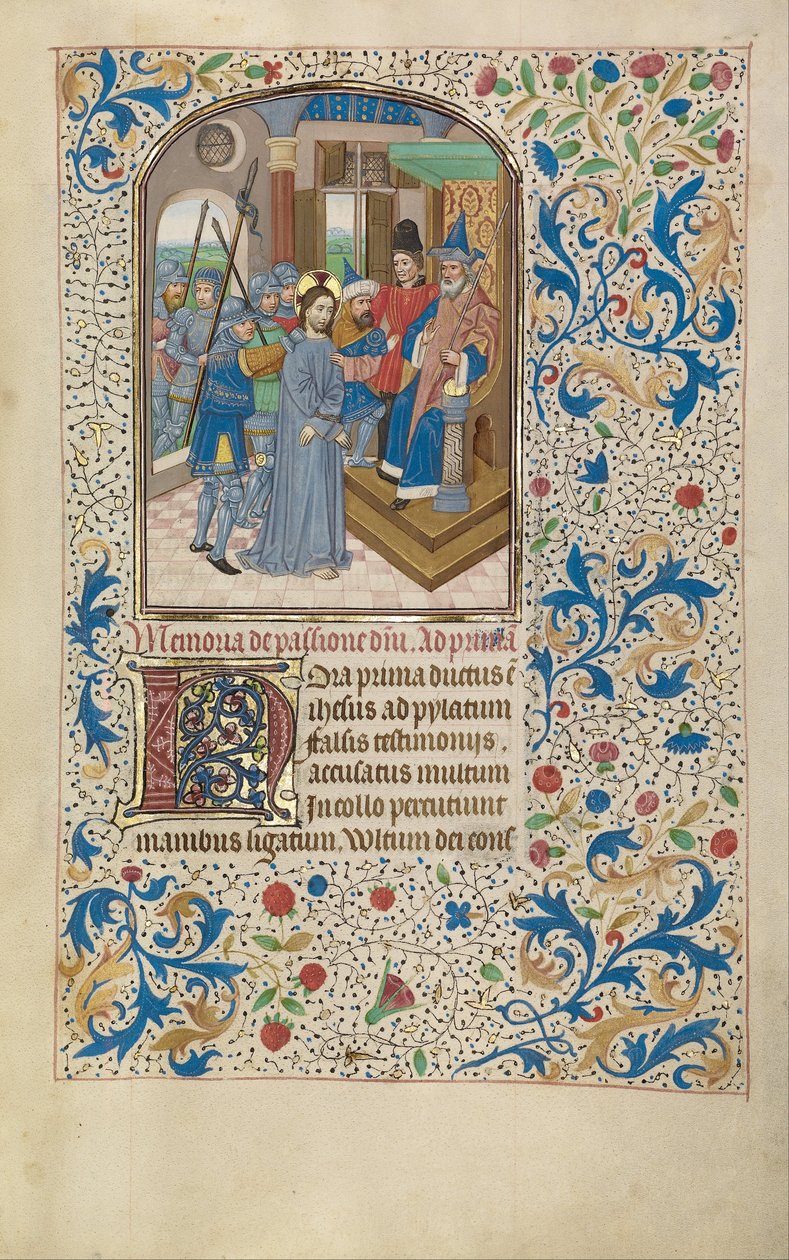 Memoria de passione dn̄i. Ad prima
Hora prima ductus ē
ihesus ad pylatum
ffalsis testimonijs.
accusatus multum
In collo percutiunt
manibus ligatum. Wltum dei conſ